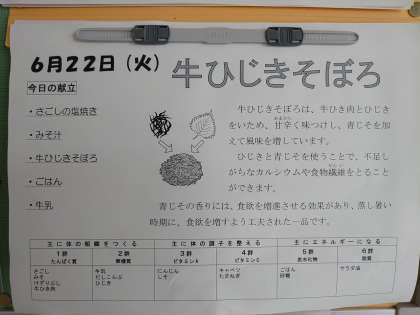 6月22日（火）
牛ひじきそぼろ
今日の献立
・さごしの塩焼き
・みそ汁
・牛ひじきそぼろ
・ごはん
・牛乳
牛ひじきそぼろは、牛ひき肉とひじき
をいため、甘辛く味つけし、青じそを加
えて風味を増しています。
ひじきと青じそを使うことで、不足し
がちなカルシウムや食物繊維をとること
ができます。
青じその香りには、食欲を増進させる効果があり、蒸し暑い
時期に、食欲を増すよう工夫された一品です。
主に体の組織をつくる 主に体の調子を整える 主にエネルギーになる
1群 2群 3群 4群 5群 6群
たんぱく質 無機質 ビタミンA ビタミンC 炭水化物 脂質
さごし 牛乳 にんじん キャベツ ごはん サラダ油
みそ にぼしこんぶ しそ たまねぎ 砂糖
けずりぶし ひじき
牛ひき肉